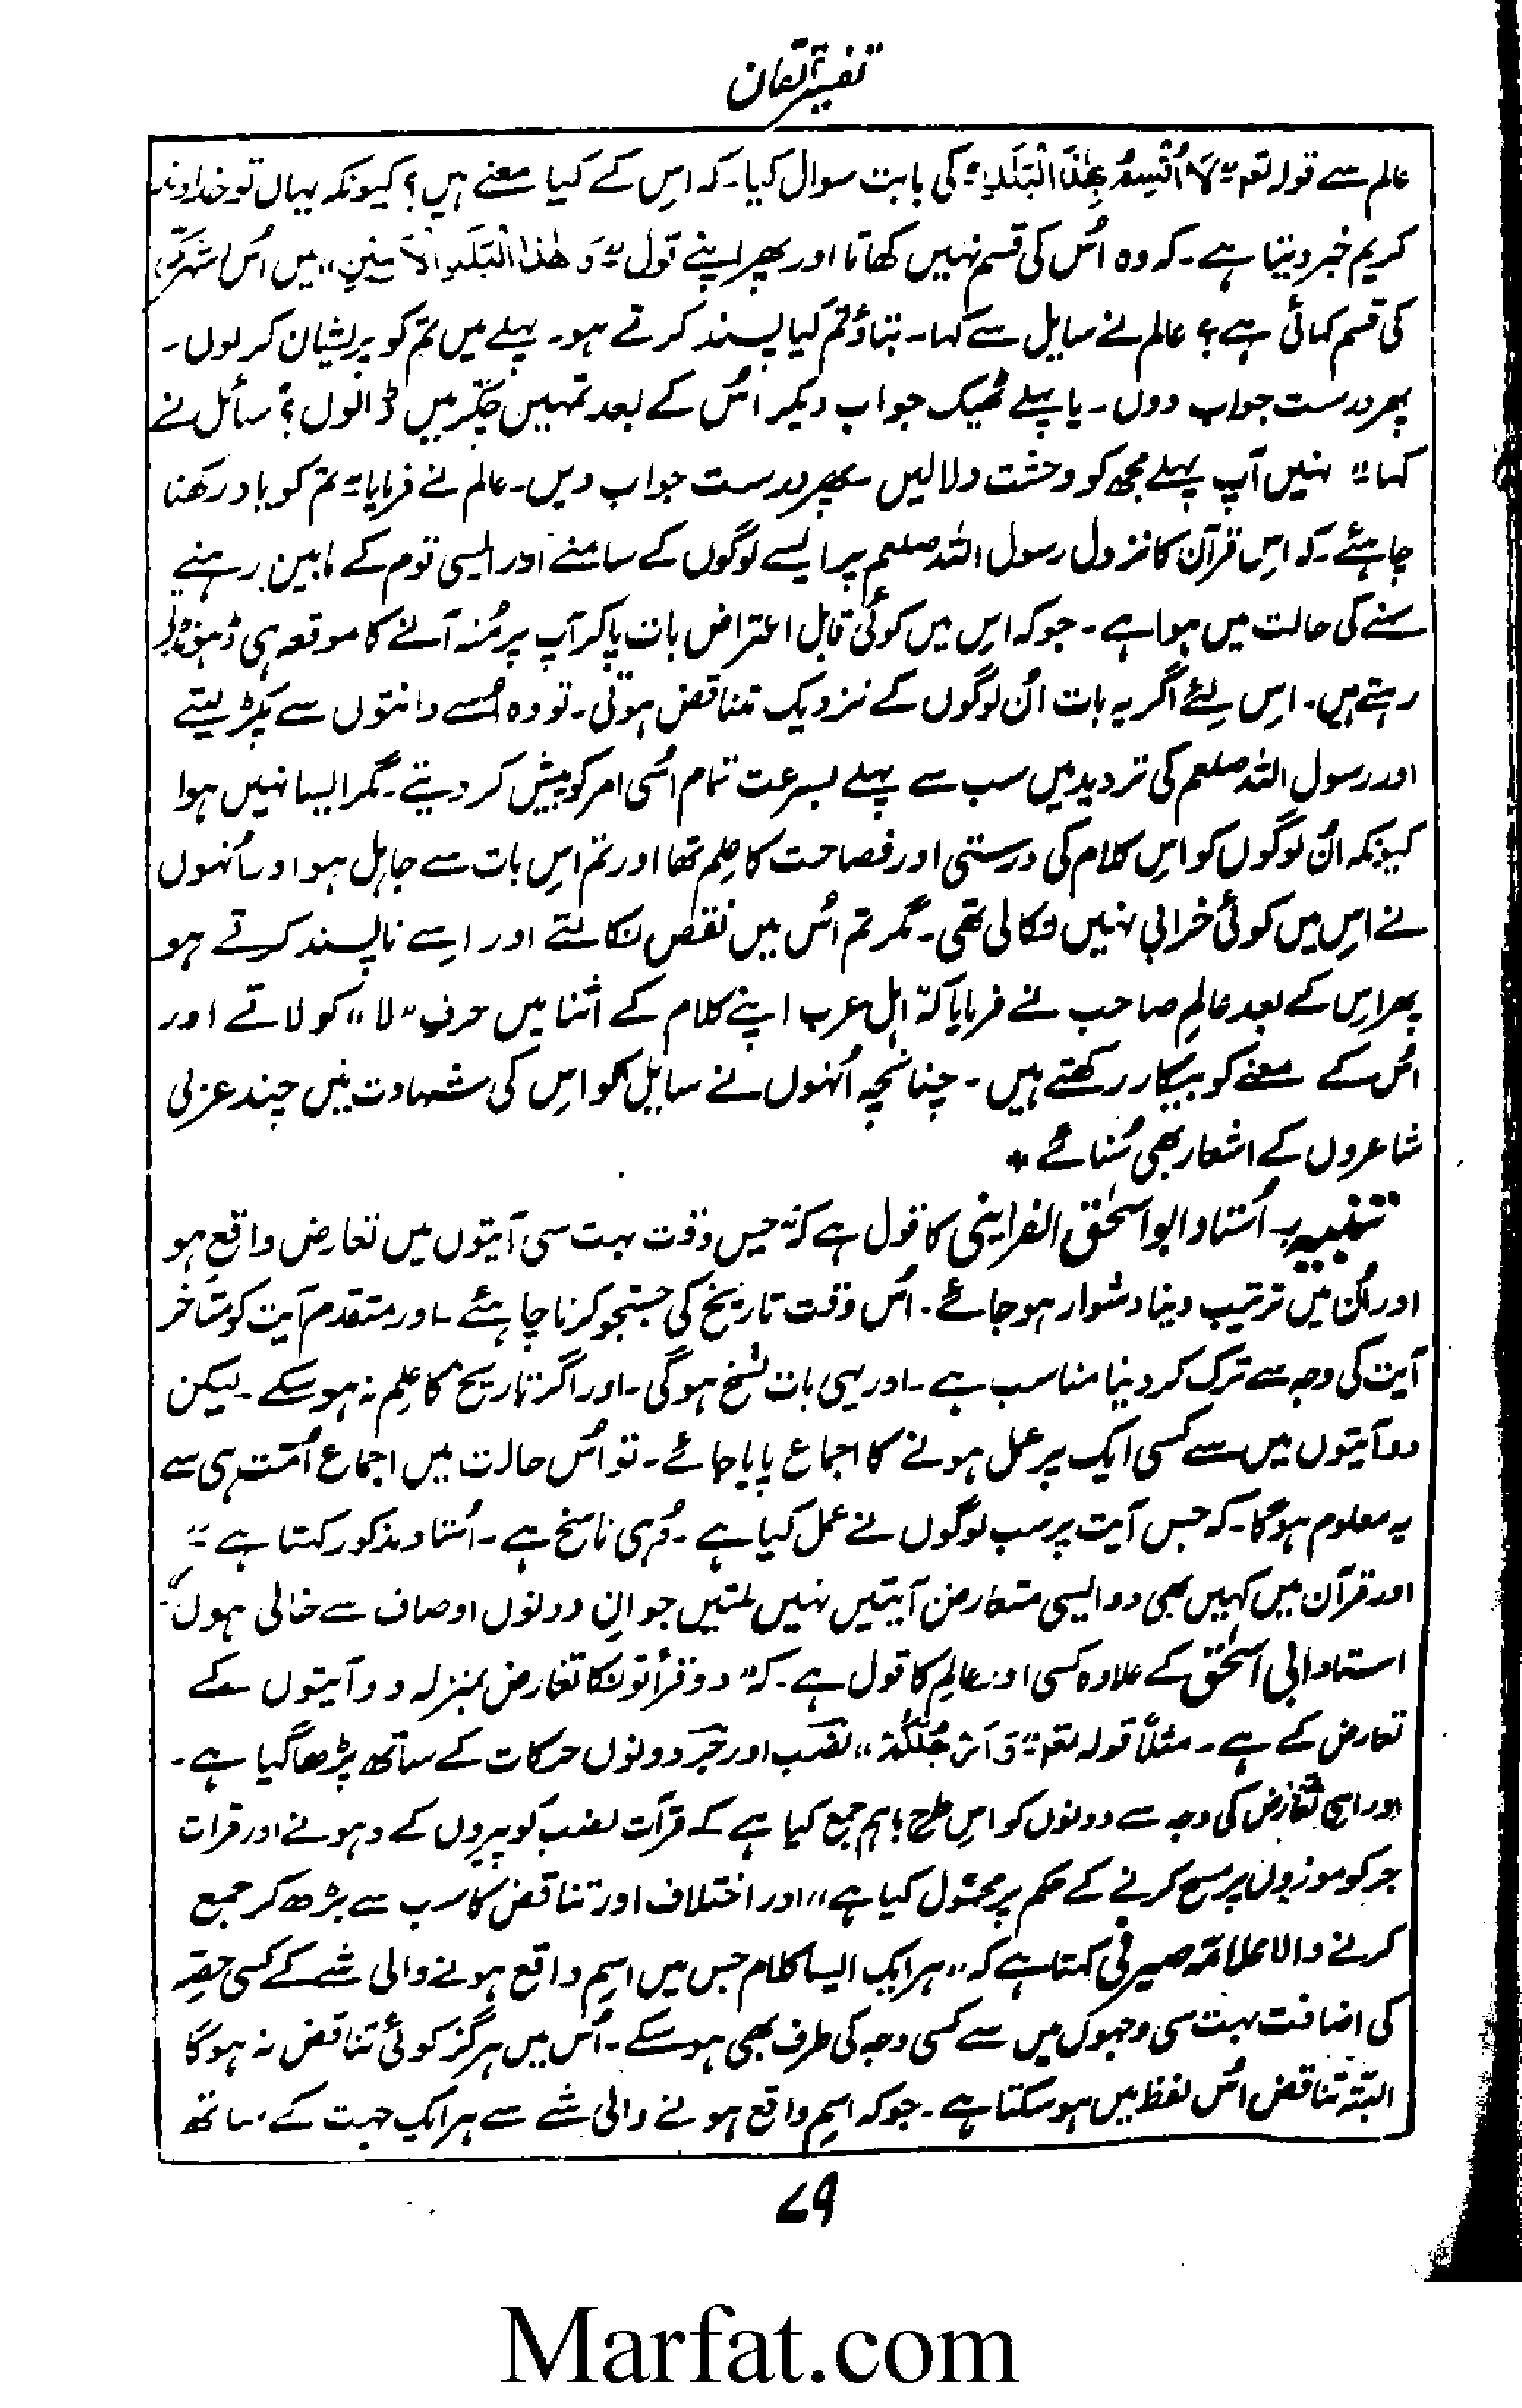 تفسیر اتقان
عالم سے قولہ تعہ "لَا اُقْسِمُ بِهٰذَا الْبَلَدِ" کی بابت سوال کیا۔ کہ اِس کے کیا معنے ہیں؟ کیونکہ یہاں تو خداوند
کریم خبر دیتا ہے۔ کہ وہ اُس کی قسم نہیں کھاتا اور پھر اپنے قول "وَ هٰذَا الْبَلَدِ الْاَمِیْنِ" میں اُس شہر
کی قسم کہائی ہے؟ عالم نے سایل سے کہا۔ بتاؤ تم کیا پسند کرتے ہو۔ پہلے میں تم کو پریشان کر لوں۔
پھر درست جواب دوں۔ یا پہلے ٹھیک جواب دیکر اُس کے بعد تمہیں چکّر میں ڈالوں؟ سائل نے
کہا" نہیں آپ پہلے مجھ کو وحشت دلالیں پھر درست جواب دیں۔ عالم نے فرمایا" تم کو یاد رکھنا
چاہئے۔ کہ اِس قرآن کا نزول رسول اللہ صلعم پر ایسے لوگوں کے سامنے اور ایسی قوم کے مابین رہنے
سہنے کی حالت میں ہوا ہے۔ جو کہ اِس میں کوئی قابل اعتراض بات پا کر آپ پر مُنہ آنے کا موقعہ ہی ڈہونڈلے
رہتے ہیں۔ اِس لئے اگر یہ بات اُن لوگوں کے نزدیک تناقض ہوتی۔ تو وہ اُسے دانتوں سے پکڑ لیتے
اور رسول اللہ صلعم کی تردید میں سب سے پہلے بسرعت تمام اُسی امر کو پیش کر دیتے۔ مگر ایسا نہیں ہوا
کیونکہ اُن لوگوں کو اِس کلام کی درستی اور فصاحت کا عِلم تھا اور تم اِس بات سے جاہل ہو اور اُنہوں
نے اِس میں کوئی خرابی نہیں نکالی تھی۔ مگر تم اُس میں نقص نکالتے اور اسے ناپسند کرتے ہو
پھر اِس کے بعد عالم صاحب نے فرمایا کہ" اہل عرب اپنے کلام کے اثنا میں حرف "لا" کو لاتے اور
اُس کے معنے کو بیکار رکھتے ہیں۔ چنانچہ اُنہوں نے سایل کو اِس کی شہادت میں چند عربی
شاعروں کے اشعار بھی سُنائے *
تنبیہ:۔ اُستاد ابواسحٰق الفراینی کا قول ہے کہ" جس وقت بہت سی آیتوں میں تعارض واقع ہو
اور اُن میں ترتیب دینا دشوار ہو جائے۔ اُس وقت تاریخ کی جستجو کرنا چاہئے۔ اور متقدم آیت کو متاخر
آیت کی وجہ سے ترک کر دینا مناسب ہے۔ اور یہی بات نسخ ہوگی۔ اور اگر تاریخ کا علم نہ ہو سکے۔ لیکن
دو آیتوں میں سے کسی ایک پر عمل ہونے کا اجماع پایا جائے۔ تو اُس حالت میں اجماع اُمت ہی سے
یہ معلوم ہوگا۔ کہ جس آیت پر سب لوگوں نے عمل کیا ہے۔ وُہی ناسخ ہے۔ اُستاد مذکور کہتا ہے "
اور قرآن میں کہیں بھی دو ایسی متعارض آیتیں نہیں ملتیں جو اِن دونوں اوصاف سے خالی ہوں"
استاد ابی اسحٰق کے علاوہ کسی اور عالِم کا قول ہے۔ کہ" دو قرأتوں کا تعارض بمنزلہ دو آیتوں کے
تعارض کے ہے۔ مثلاً قولہ تعہ "وَ اَرْجُلَكُمْ" نصَب اور جَر دونوں حرکات کے ساتھ پڑھا گیا ہے۔
اور اسی تعارض کی وجہ سے دونوں کو اِس طرح باہم جمع کیا ہے کہ قرآت نصب کو پیروں کے دہونے اور قرات
جر کو موزوں پر مسح کرنے کے حکم پر محمول کیا ہے" اور اختلاف اور تناقض کا سب سے بڑھ کر جمع
کرنے والا علامّہ صیرفی کہتا ہے کہ "ہر ایک ایسا کلام جس میں اسمِ واقع ہونے والی شے کے کسی حِصّہ
کی اضافت بہت سی وجہوں میں سے کسی وجہ کی طرف بھی ہو سکے۔ اُس میں ہرگز کوئی تناقض نہ ہوگا
البتّہ تناقض اُس لفظ میں ہو سکتا ہے۔ جو کہ اسمِ واقع ہونے والی شے سے ہر ایک جہت کے ساتھ
۷۹
Marfat.com